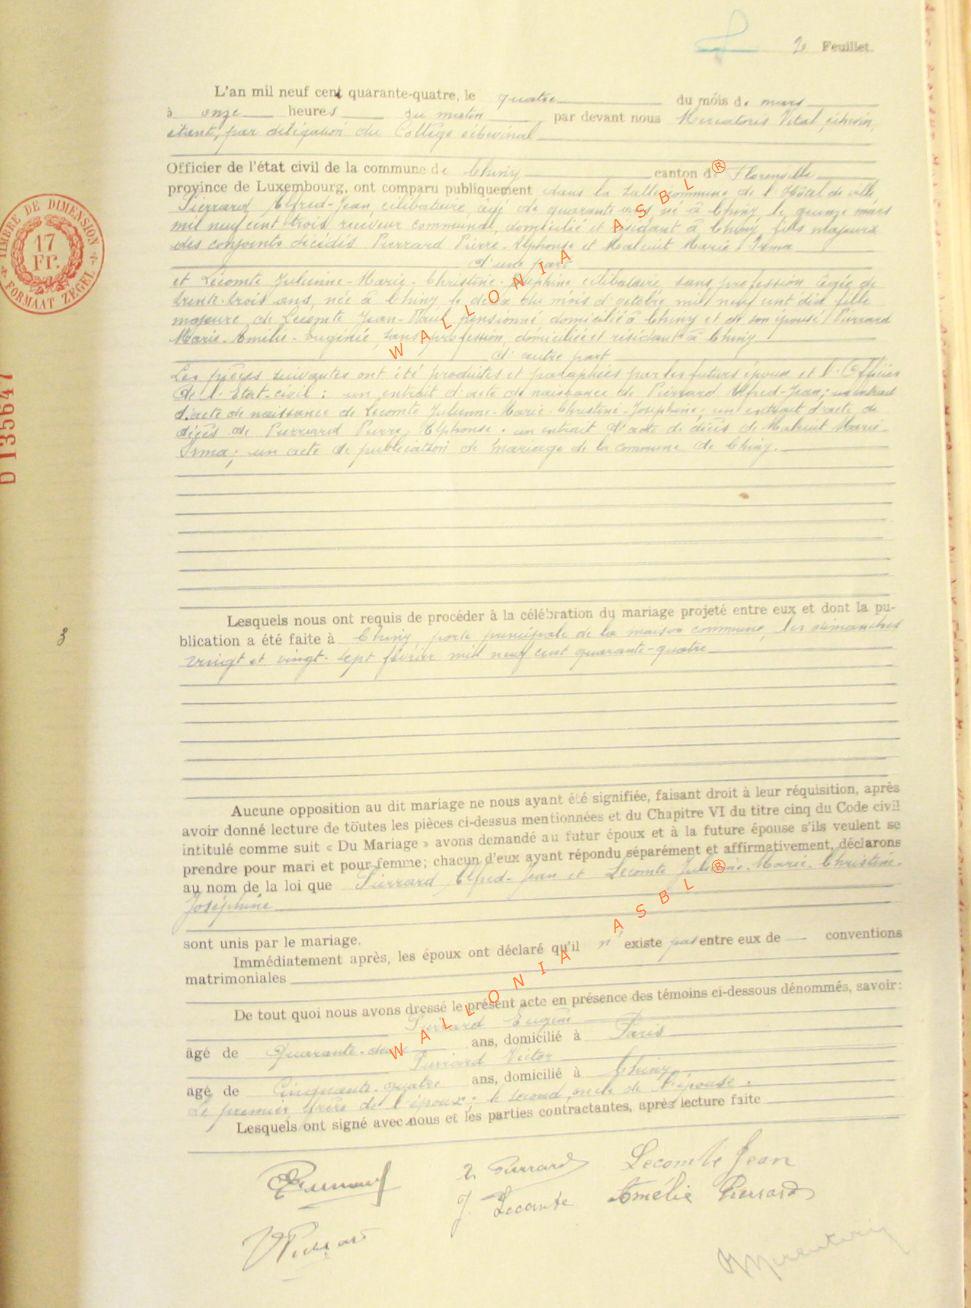 2 Feuillet.
L'an mil neuf cent quarante-quatre, le quatre du mois de mars
à onze heures du matin par devant nous Mercatoris Vital, échevin,
étant, par délégation du Collège échevinal
Officier de l'état civil de la commune de Chiny canton de Florenville
province de Luxembourg, ont comparu publiquement dans la salle commune de l'Hôtel de ville
Pierrard Alfred-Jean, célibataire âgé de quarante ans, né à Chiny le quinze mars
mil neuf cent trois, receveur communal, domicilié et résidant à Chiny, fils majeur
des conjoints décédés Pierrard Pierre-Alphonse et Maleuit Marie-Irma
d'une part
et Lecomte Julienne-Marie-Christine-Joséphine célibataire, sans profession âgée de
trente-trois ans, née à Chiny le du mois d'octobre mil neuf cent dix fille
majeure de Lecomte Jean-Paul, pensionné domicilié à Chiny et de son épouse Pierrard
Marie-Amélie-Eugénie, sans profession, domiciliée et résidant à Chiny
d'autre part
Les pièces suivantes ont été produites et paraphées par les futurs époux et l'Officier
de l'Etat-civil : un extrait d'acte de naissance de Pierrard Alfred-Jean; un extrait
d'acte de naissance de Lecomte Julienne-Marie-Christine-Joséphine; un extrait d'acte de
décès de Pierrard Pierre, Alphonse; un extrait d'acte de décès de Maleuit Marie-
Irma; un acte de publication de mariage de la commune de Chiny.
17
FR.
TIMBRE DE DIMENSION
FORMAAT ZEGEL
D 135647
3
Lesquels nous ont requis de procéder à la célébration du mariage projeté entre eux et dont la pu-
blication a été faite à Chiny, porte principale de la maison commune, les dimanches
vingt et vingt-sept février mil neuf cent quarante-quatre
Aucune opposition au dit mariage ne nous ayant été signifiée, faisant droit à leur réquisition, après
avoir donné lecture de toutes les pièces ci-dessus mentionnées et du Chapitre VI du titre cinq du Code civil
intitulé comme suit « Du Mariage » avons demandé au futur époux et à la future épouse s'ils veulent se
prendre pour mari et pour femme; chacun d'eux ayant répondu séparément et affirmativement, déclarons
au nom de la loi que Pierrard Alfred-Jean et Lecomte Julienne-Marie-Christine-
Joséphine
sont unis par le mariage.
Immédiatement après, les époux ont déclaré qu'il n' existe pas entre eux de conventions
matrimoniales
De tout quoi nous avons dressé le présent acte en présence des témoins ci-dessous dénommés, savoir:
Pierrard Eugène
âgé de Quarante- ans, domicilié à Paris
Pierrard Victor
agé de Cinquante-quatre ans, domicilié à Chiny
Le premier frère de l'époux; le second oncle de l'épouse.
Lesquels ont signé avec nous et les parties contractantes, après lecture faite
Pierrard Lecomte Jean
J. Lecomte Amélie Pierrard
WALLONIA ASBL ®
WALLONIA ASBL ®